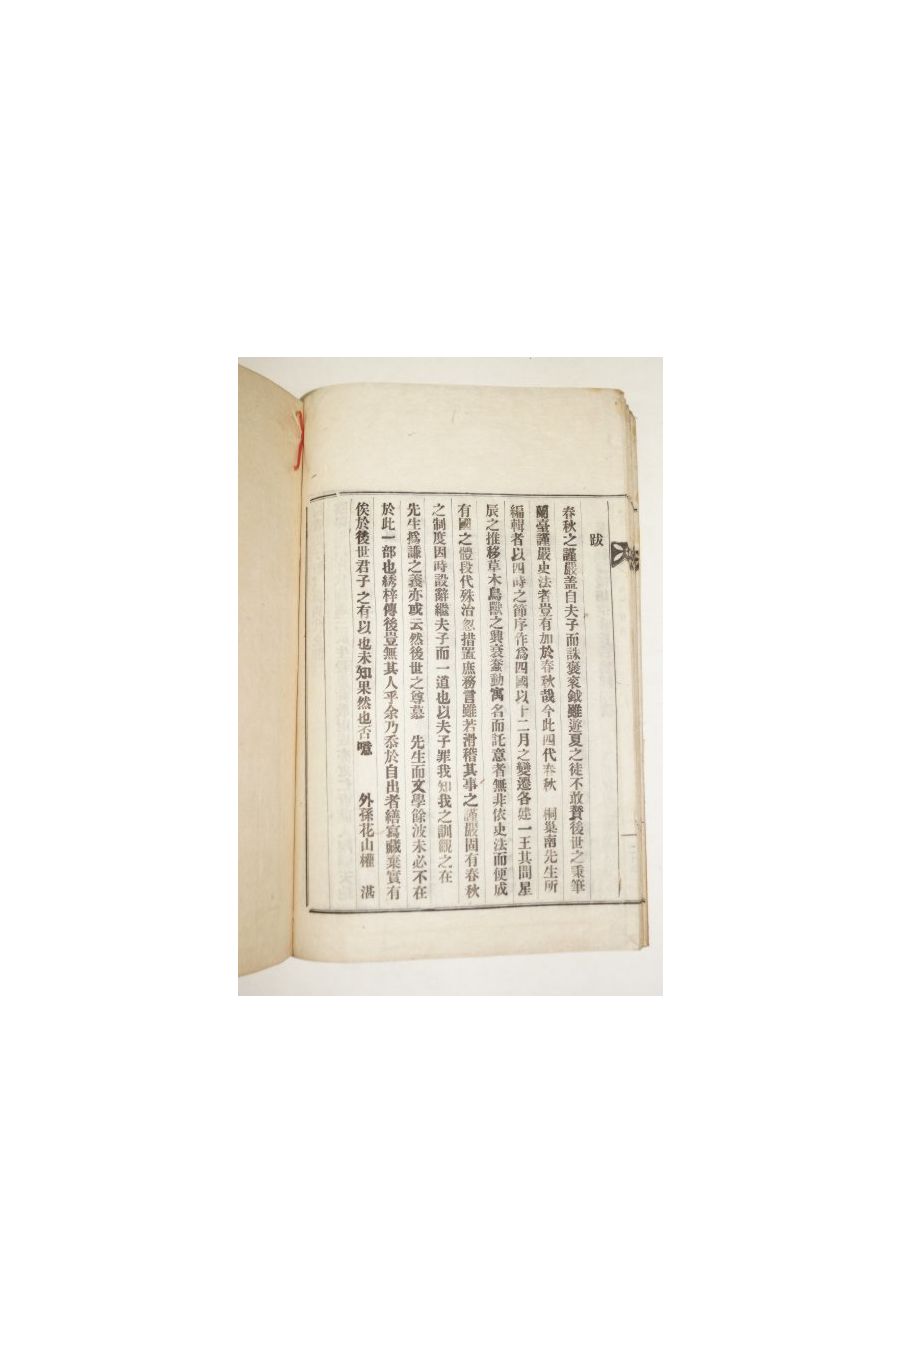 跋
春秋之謹嚴盖自夫子而誅褒衮鉞雖遊夏之徒不敢贊後世之秉筆
蘭臺謹嚴史法者豈有加於春秋哉今此四代春秋 桐巢南先生所
編輯者以四時之節序作爲四國以十二月之變遷各建一王其間星
辰之推移草木鳥獸之興衰蠢動寓名而託意者無非依史法而便成
有國之體段代殊治忽措置庶務言雖若滑稽其事之謹嚴固有春秋
之制度因時設辭繼夫子而一道也以夫子罪我知我之訓觀之在
先生撝謙之義亦或云然後世之尊慕 先生而文學餘波未必不在
於此一部也綉梓傳後豈無其人乎余乃忝於自出者繕寫藏棄實有
俟於後世君子之有以也未知果然也否噫 外孫花山權 湛